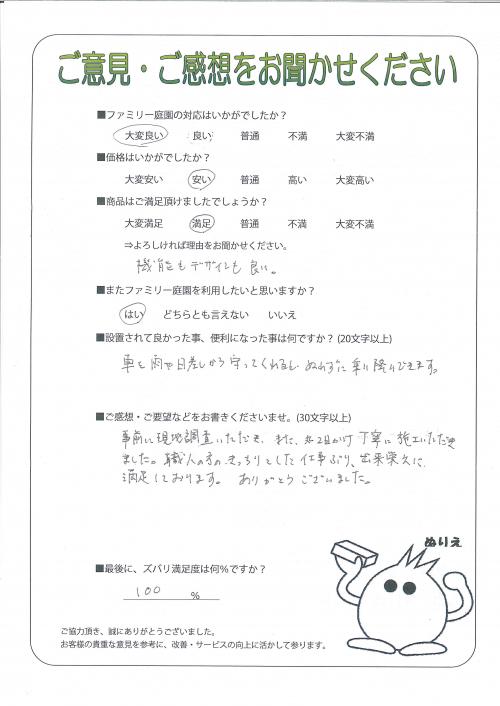 ご意見・ご感想をお聞かせください
■ファミリー庭園の対応はいかがでしたか？
大変良い 良い 普通 不満 大変不満
■価格はいかがでしたか？
大変安い 安い 普通 高い 大変高い
■商品はご満足頂けましたでしょうか？
大変満足 満足 普通 不満 大変不満
⇒よろしければ理由をお聞かせください。
機能もデザインも良い。
■またファミリー庭園を利用したいと思いますか？
はい どちらとも言えない いいえ
■設置されて良かった事、便利になった事は何ですか？(20文字以上)
車を雨や日差しから守ってくれるし ぬれずに乗り降りできます。
■ご感想・ご要望などをお書きくださいませ。(30文字以上)
事前に現地調査いただき、また、丸2日かけ丁寧に施工いただき
ました。職人の方のきっちりとした仕事ぶり、出来栄えに
満足しております。ありがとうございました。
ぬりえ
■最後に、ズバリ満足度は何％ですか？
100 ％
ご協力頂き、誠にありがとうございました。
お客様の貴重な意見を参考に、改善・サービスの向上に活かして参ります。